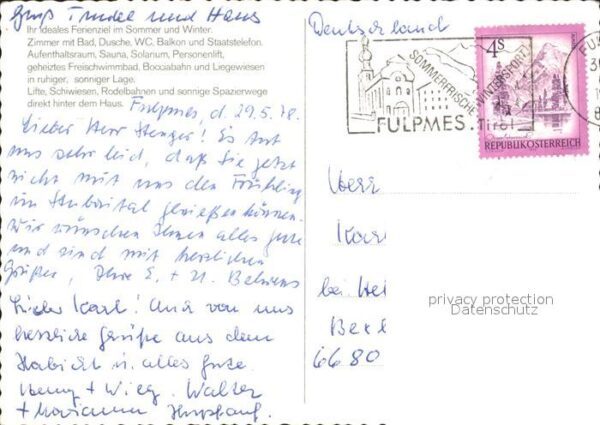 Gruß Trudel und Hans
Ihr ideales Ferienziel im Sommer und Winter.
Zimmer mit Bad, Dusche, WC, Balkon und Staatstelefon.
Aufenthaltsraum, Sauna, Solarium, Personenlift,
geheiztes Freischwimmbad, Bocciabahn und Liegewiesen
in ruhiger, sonniger Lage.
Lifte, Schiwiesen, Rodelbahnen und sonnige Spazierwege
direkt hinter dem Haus.
Fulpmes, d. 29.5.78.
Lieber Herr Stenger! Es tut
uns sehr leid, daß Sie jetzt
nicht mit uns den Frühling
im Stubaital genießen können.
Wir wünschen Ihnen alles gute
und sind mit herzlichen
Grüßen, Ihre E. + H. Behrens
Lieber Karl! Auch von uns
herzliche Grüße aus dem
Habicht u. alles gute
+ Walter
+ Marianne
Deutschland
SOMMERFRISCHE WINTERSPORT
FULPMES. Tirol
4S
REPUBLIK ÖSTERREICH
Herr
Karl
bei Hei
Bex
6680
privacy protection
Datenschutz